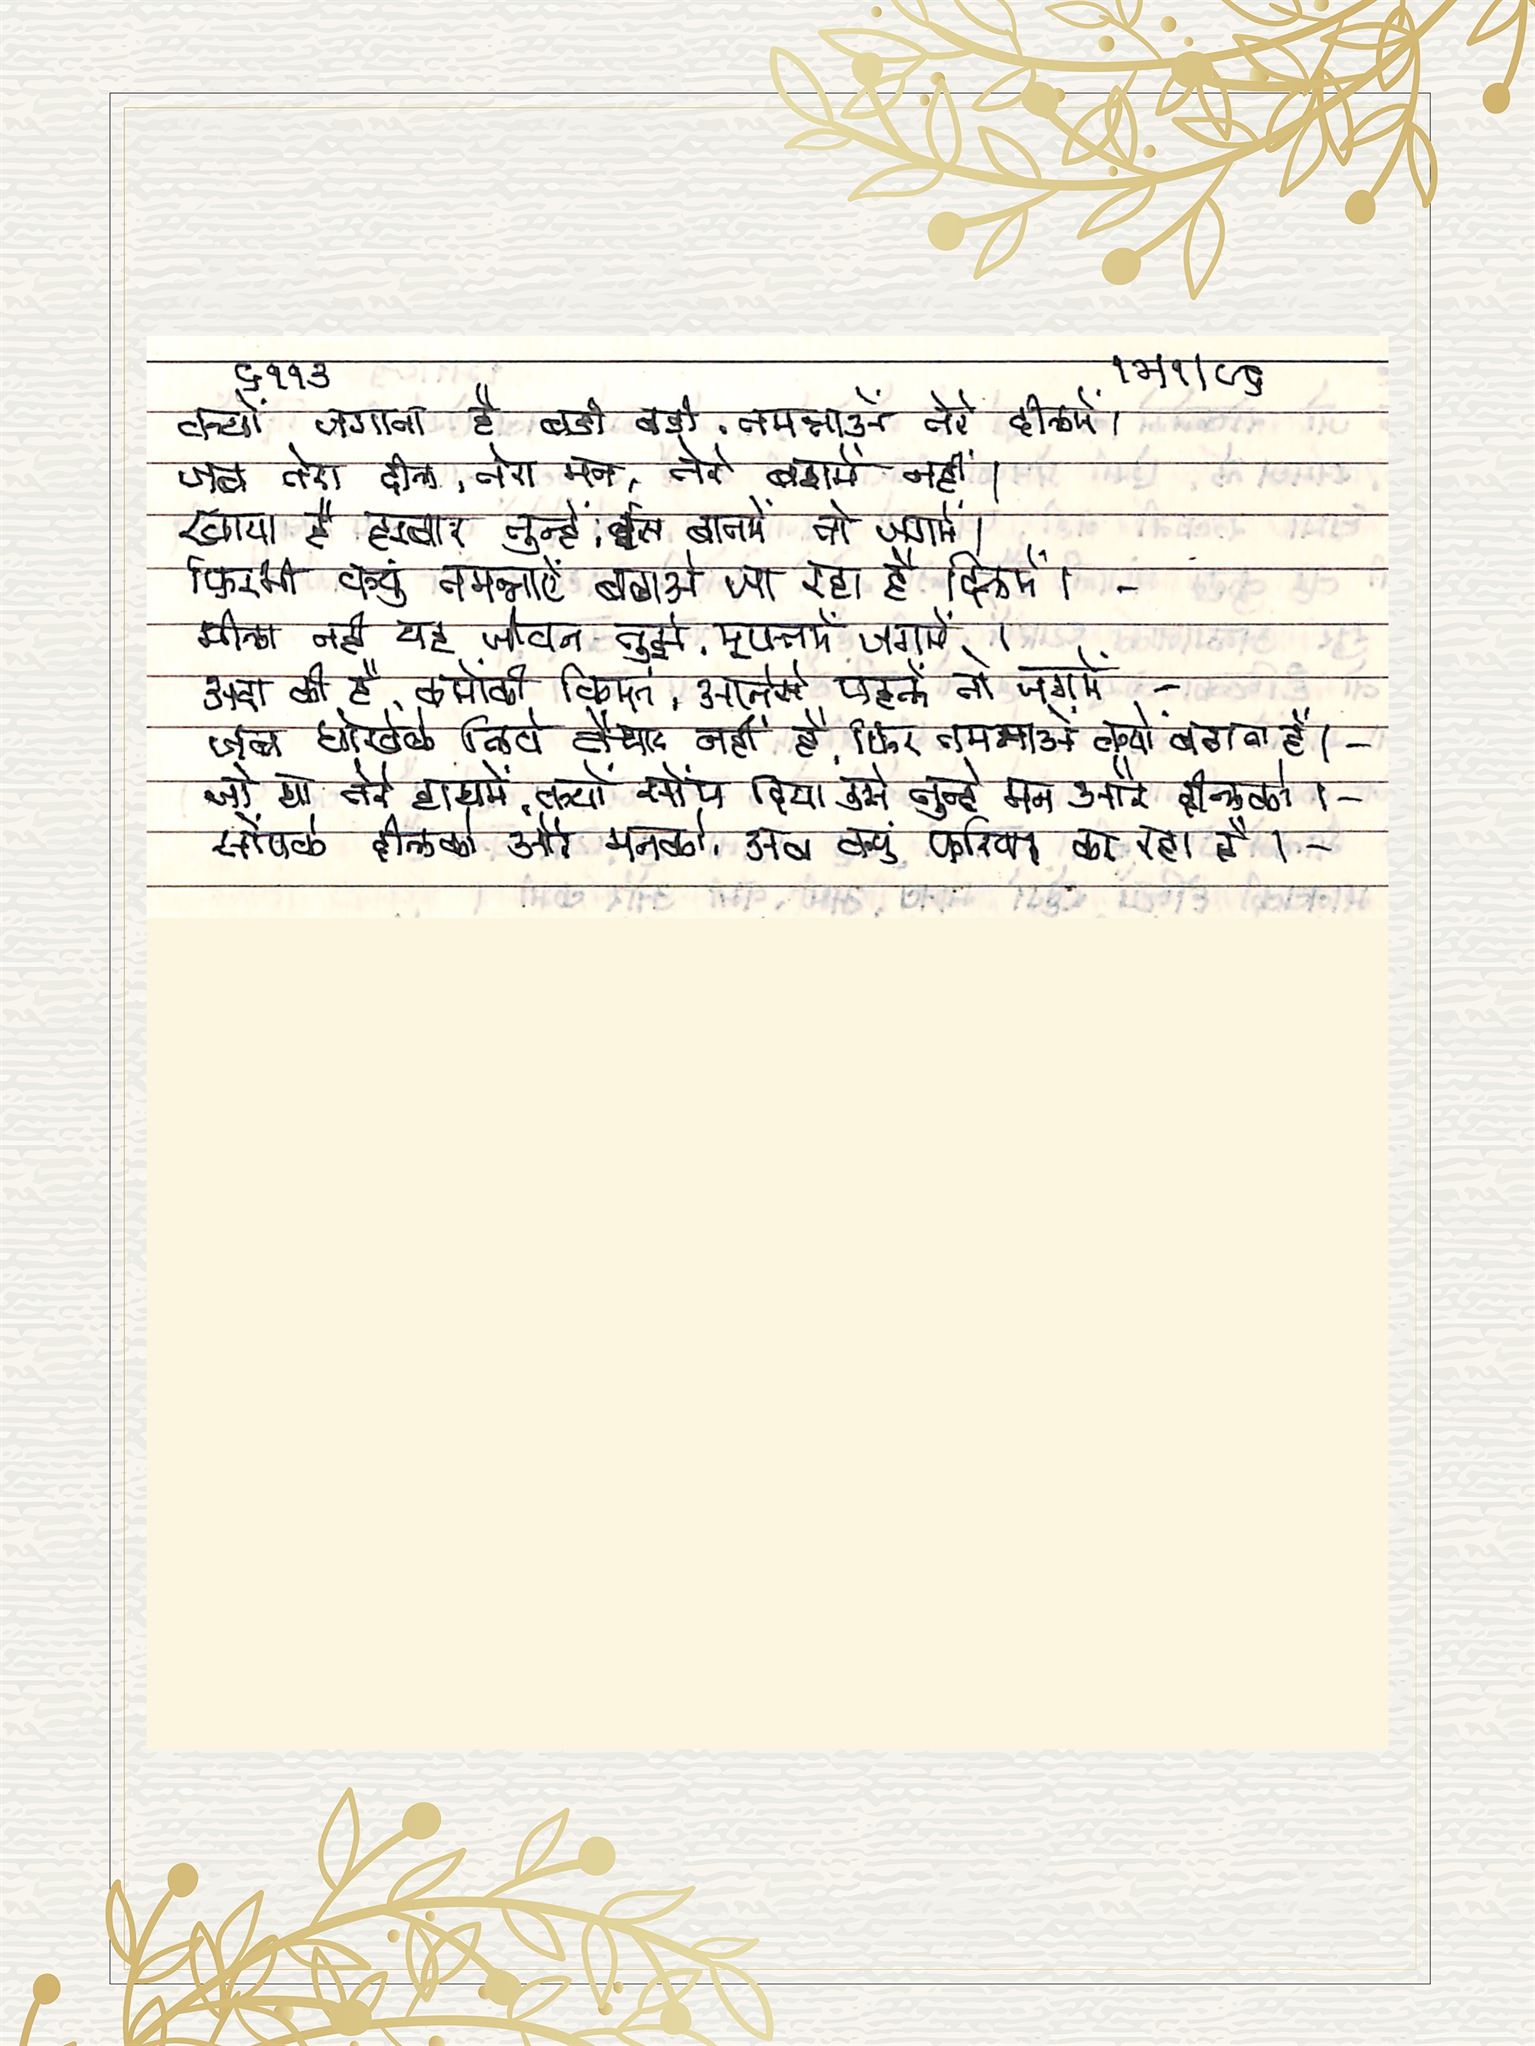 ६११३
क्यों जगाता है बडी बडी, तमन्नाओं तेरे दीलमें।
जब तेरा दील, तेरा मन, तेरे बशमें नहीं।
खाया है हरबार तुन्हें, ईस बातमें तो जगमें।
फिरभी क्युं तमन्नाऐं बढाओ जा रहा है दिलमें। -
मीला नही यह जीवन तुझे, मूफ्तमें जगमें, ।
अदा की है, कर्मोंकी किंमत, आनेसे पहलें तो जगमें -
जब धोखेके लिये तैयार नहीं है, फिर तमन्नाओं क्यों बढाता है। -
जो था तेरे हाथमें, क्यों सोंप दिया उसे तुन्हे मन और दीलको। -
सोंपके दीलको और मनको, अब क्युं फरियाद कर रहा है। -